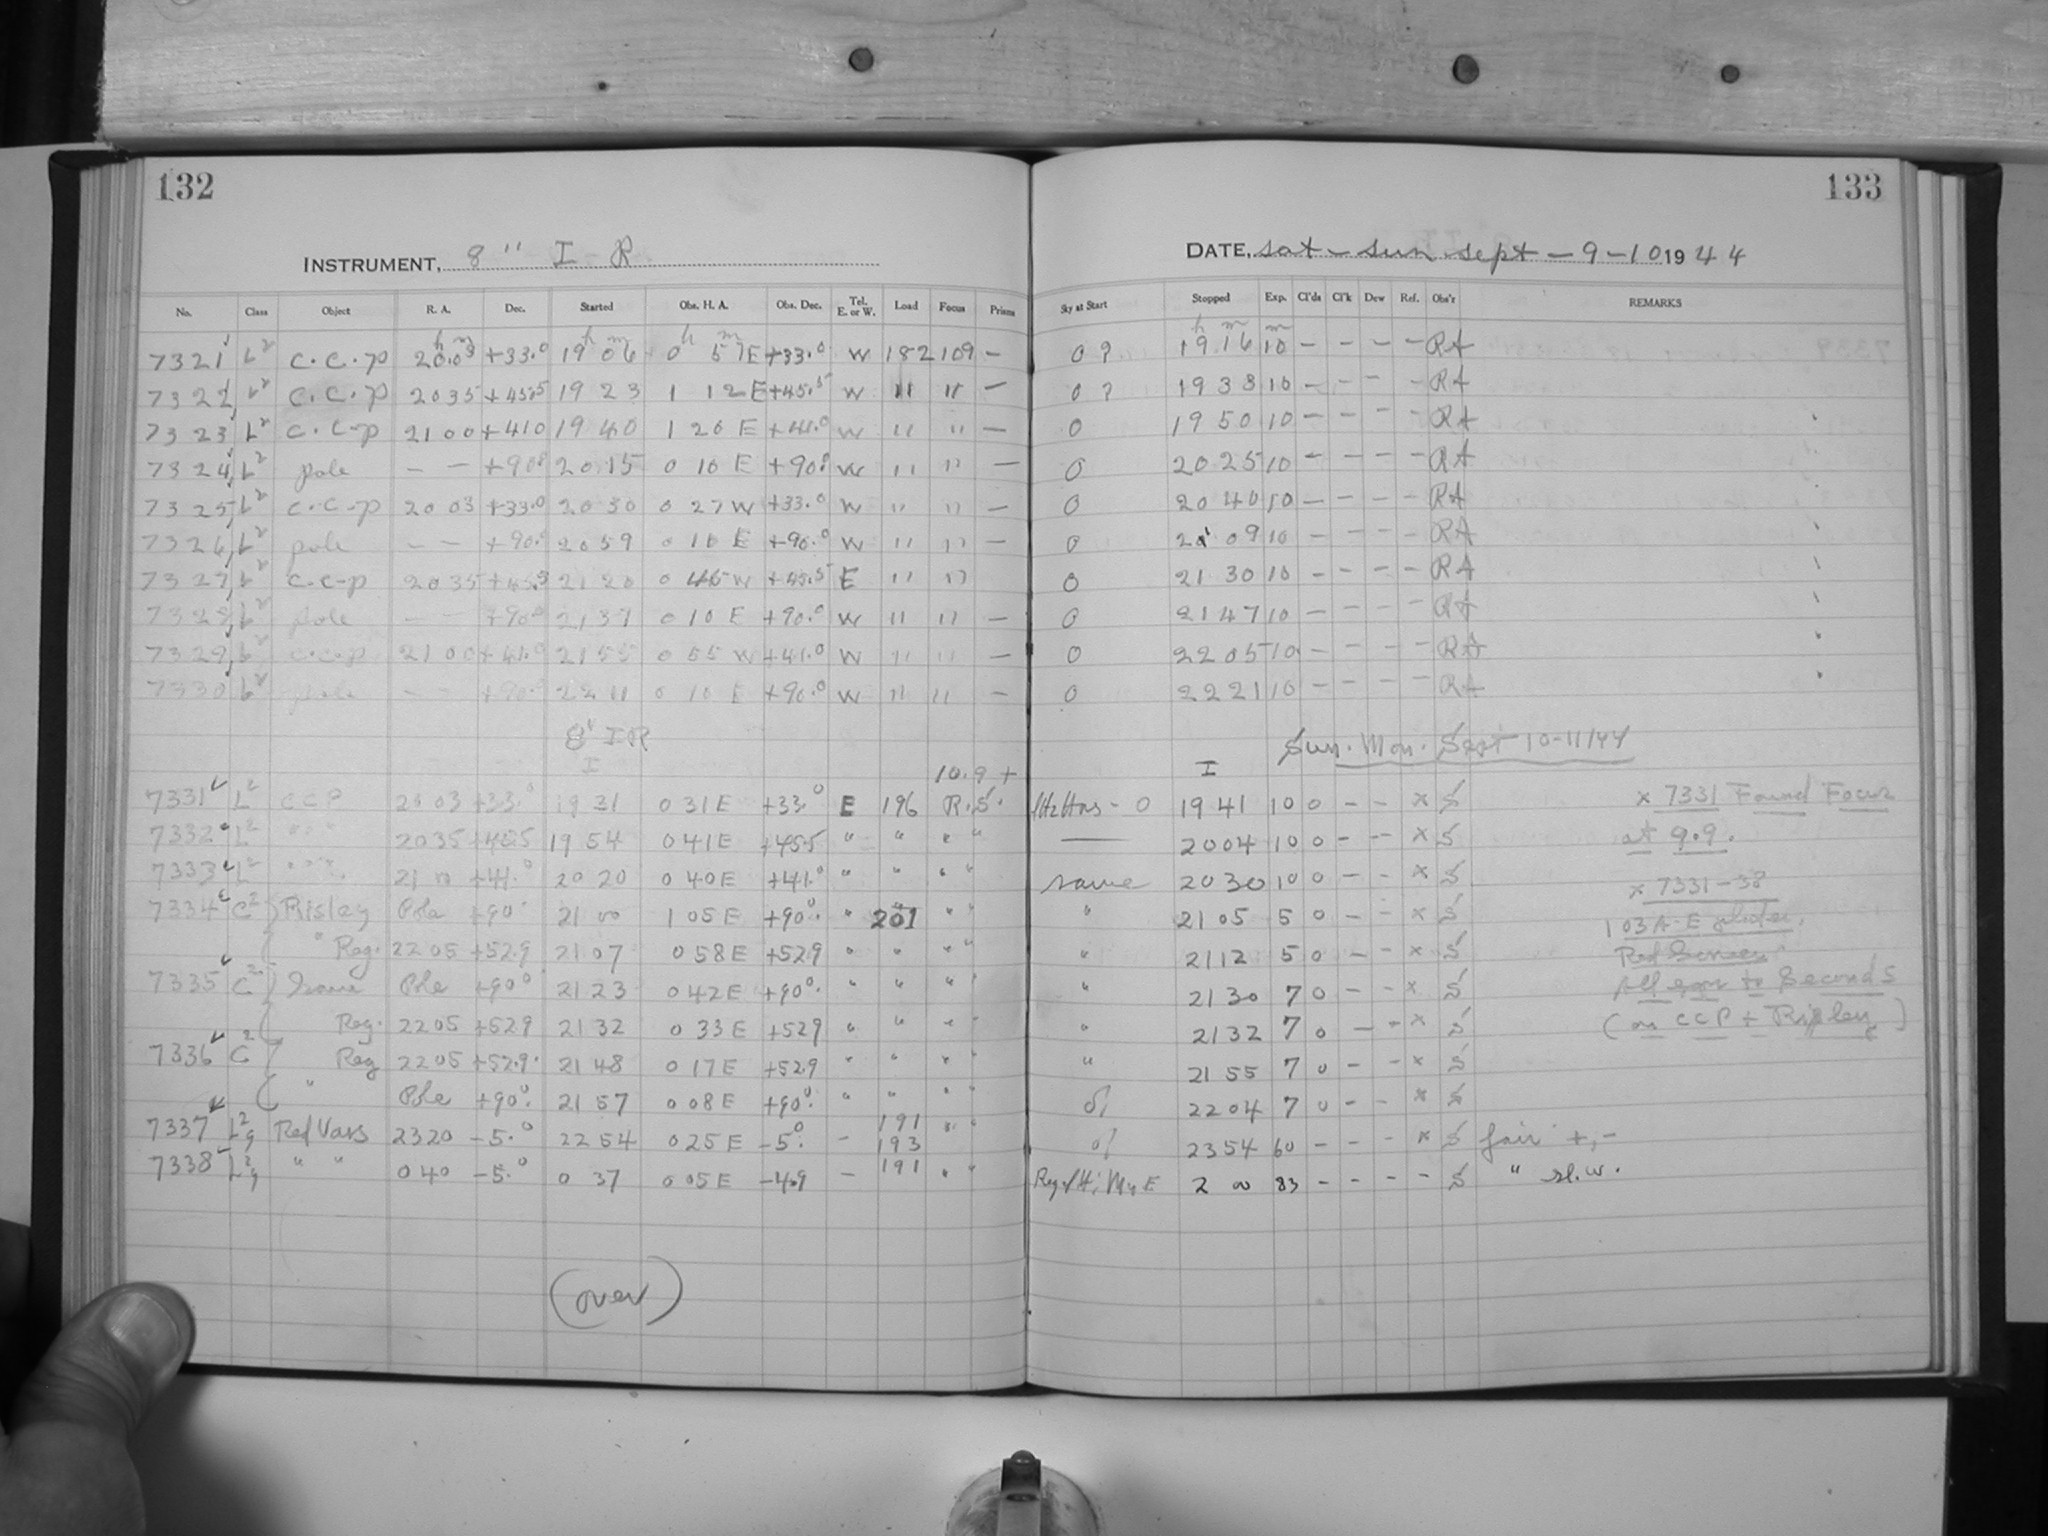 132
INSTRUMENT, 8" I R
No. Class Object R. A. Dec. Started Obs. H. A. Obs. Dec. Tel. E. or W. Load Focus Prism
h m h m h m
7321 L2 c.c.p 20.03 +33.0 19 06 0 57E +33.0 W 182 109 —
7322 L2 c.c.p 2035 +45.5 19 23 1 12E +45.5 W " " —
7323 L2 c.c-p 2100 +410 1940 1 20 E +41.0 W " " —
7324 L2 pole — — +90.0 2015 0 10 E +90.0 W " " —
7325 L2 c.c-p 2003 +33.0 2030 0 27W +33.0 W " " —
7326 L2 pole — — +90.0 2059 0 10 E +90.0 W " " —
7327 L2 c.c-p 2035 +45.5 2120 0 46W +45.5 E " "
7328 L2 pole — — +90.0 2137 0 10 E +90.0 W " " —
7329 L2 c.c.p 2100 +41.0 2155 0 55 W +41.0 W " " —
7330 L2 pole — — +90.0 2211 0 10 E +90.0 W " " —
8" IR
I 10.9 +
7331 L2 CCP 2003 +33.0 1931 031E +33.0 E 196 R.S.
7332 L2 " " " 2035 +45.5 1954 041E +45.5 " " " "
7333 L2 " " " 21 00 +41.0 2020 040E +41.0 " " " "
7334 C2 Risley Pole +90° 21 00 1 05E +90° " 201 " "
" Reg. 2205 +52.9 2107 058E +529 " " " "
7335 C2 Same Pole +90° 2123 042E +90° " " " "
Reg. 2205 +529 2132 033E +529 " " " "
7336 C2 Reg 2205 +52.9 2148 017E +529 " " " "
" Pole +90° 2157 008E +90° " " " "
7337 L2g Red Vars 2320 -5.0 2254 025E -5.0 — 191 193 " "
7338 L2g " " 040 -5.0 0 37 005E -4.9 — 191 " "
(over)
133
DATE, sat - sun sept - 9 - 10 1944
Sky at Start Stopped Exp. Cl'ds Cl'k Dew Ref. Obs'r REMARKS
h m m
0? 1916 10 — — — — RA
0? 1938 10 — — — — RA
0 1950 10 — — — — RA
0 2025 10 — — — — RA
0 2040 10 — — — — RA
0 2109 10 — — — — RA
0 21 30 10 — — — — RA
0 2147 10 — — — — RA
0 2205 10 — — — — RA
0 2221 10 — — — — RA
Sun. Mon. Sept 10-11/44
I
- 0 1941 10 0 — — x S x 7331 Found Focus
— 2004 10 0 — — x S at 9.9.
same 2030 10 0 — — x S x 7331-38
" 2105 5 0 — — x S 103A-E
" 2112 5 0 — — x S Red
" 2130 7 0 — — x S to Seconds
" 2132 7 0 — — x S (on CCP + Risley)
" 2155 7 0 — — x S
2204 7 0 — — x S
2354 60 — — — x S fair +, -
2 00 83 — — — — S " sl.w.